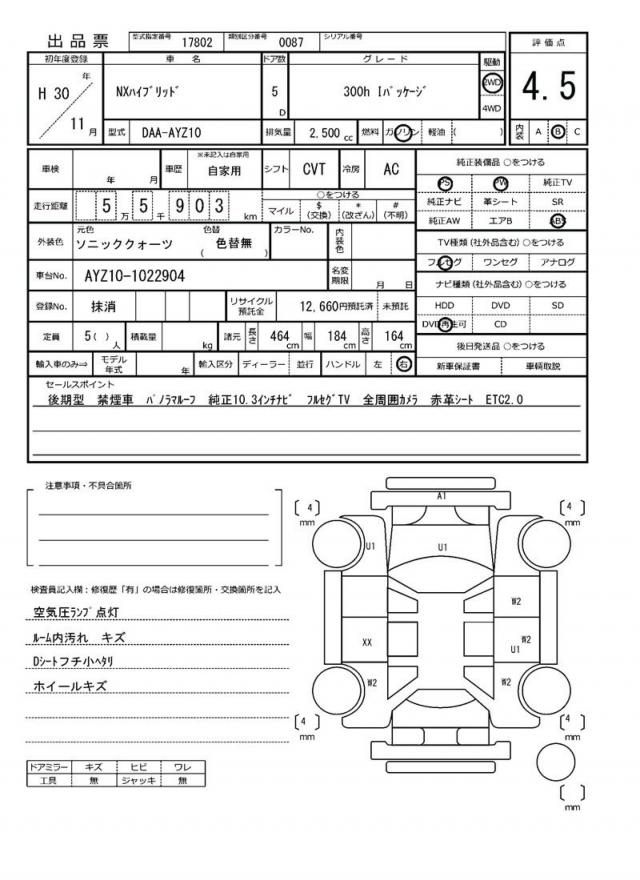 出品票 型式指定番号 17802 類別区分番号 0087 シリアル番号
初年度登録 車名 ドア数 グレード 駆動 評価点
H 30 年 NXハイブリッド 5 D 300h Iパッケージ 2WD 4WD 4.5
11 月 型式 DAA-AYZ10 排気量 2,500 cc 燃料 ガソリン 軽油 ( ) 内装 A B C
車検 年 月 車歴 ※未記入は自家用 自家用 シフト CVT 冷房 AC 純正装備品 ○をつける
PS PW 純正TV
走行距離 5 万 5 千 9 0 3 km ○をつける
マイル $ (交換) * (改ざん) # (不明) 純正ナビ 革シート SR
純正AW エアB ABS
外装色 元色 ソニッククォーツ 色替 ( 色替無 ) カラーNo. 内装色 TV種類 (社外品含む) ○をつける
フルセグ ワンセグ アナログ
車台No. AYZ10-1022904 名変期限 月 日 ナビ種類 (社外品含む) ○をつける
登録No. 抹消 リサイクル預託金 12,660円預託済 未預託 HDD DVD SD
DVD再生可 CD
定員 5( ) 人 積載量 kg 諸元 長さ 464 cm 幅 184 cm 高さ 164 cm 後日発送品 ○をつける
輸入車のみ⇒ モデル年式 年 輸入区分 ディーラー 並行 ハンドル 左 右 新車保証書 車輌取説
セールスポイント
後期型 禁煙車 パノラマルーフ 純正10.3インチナビ フルセグTV 全周囲カメラ 赤革シート ETC2.0
注意事項・不具合箇所
検査員記入欄：修復歴「有」の場合は修復箇所・交換箇所を記入
空気圧ランプ点灯
ルーム内汚れ キズ
Dシートフチ小ヘタリ
ホイールキズ
ドアミラー キズ ヒビ ワレ
工具 無 ジャッキ 無
A1
[ 4 ] mm [ 4 ] mm
U1 U1
W2
XX W2
U1
W2 W2
[ 4 ] mm [ 4 ] mm
[ ] mm